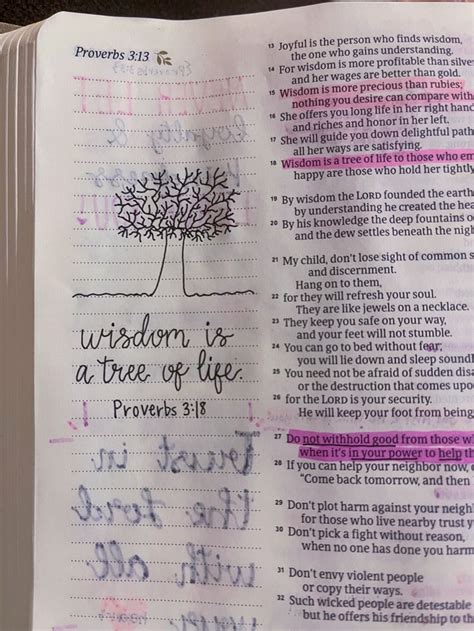 Proverbs 3:13
wisdom is
a tree of life.
Proverbs 3:18
13 Joyful is the person who finds wisdom,
the one who gains understanding.
14 For wisdom is more profitable than silver
and her wages are better than gold.
15 Wisdom is more precious than rubies;
nothing you desire can compare with
16 She offers you long life in her right hand
and riches and honor in her left.
17 She will guide you down delightful path
all her ways are satisfying.
18 Wisdom is a tree of life to those who em
happy are those who hold her tightly
19 By wisdom the LORD founded the earth
by understanding he created the hea
20 By his knowledge the deep fountains o
and the dew settles beneath the nigh
21 My child, don't lose sight of common s
and discernment.
Hang on to them,
22 for they will refresh your soul.
They are like jewels on a necklace.
23 They keep you safe on your way,
and your feet will not stumble.
24 You can go to bed without fear;
you will lie down and sleep sound
25 You need not be afraid of sudden disa
or the destruction that comes upo
26 for the LORD is your security.
He will keep your foot from being
27 Do not withhold good from those w
when it's in your power to help th
28 If you can help your neighbor now,
"Come back tomorrow, and then
29 Don't plot harm against your neigh
for those who live nearby trust y
30 Don't pick a fight without reason,
when no one has done you harm
31 Don't envy violent people
or copy their ways.
32 Such wicked people are detestable
but he offers his friendship to the